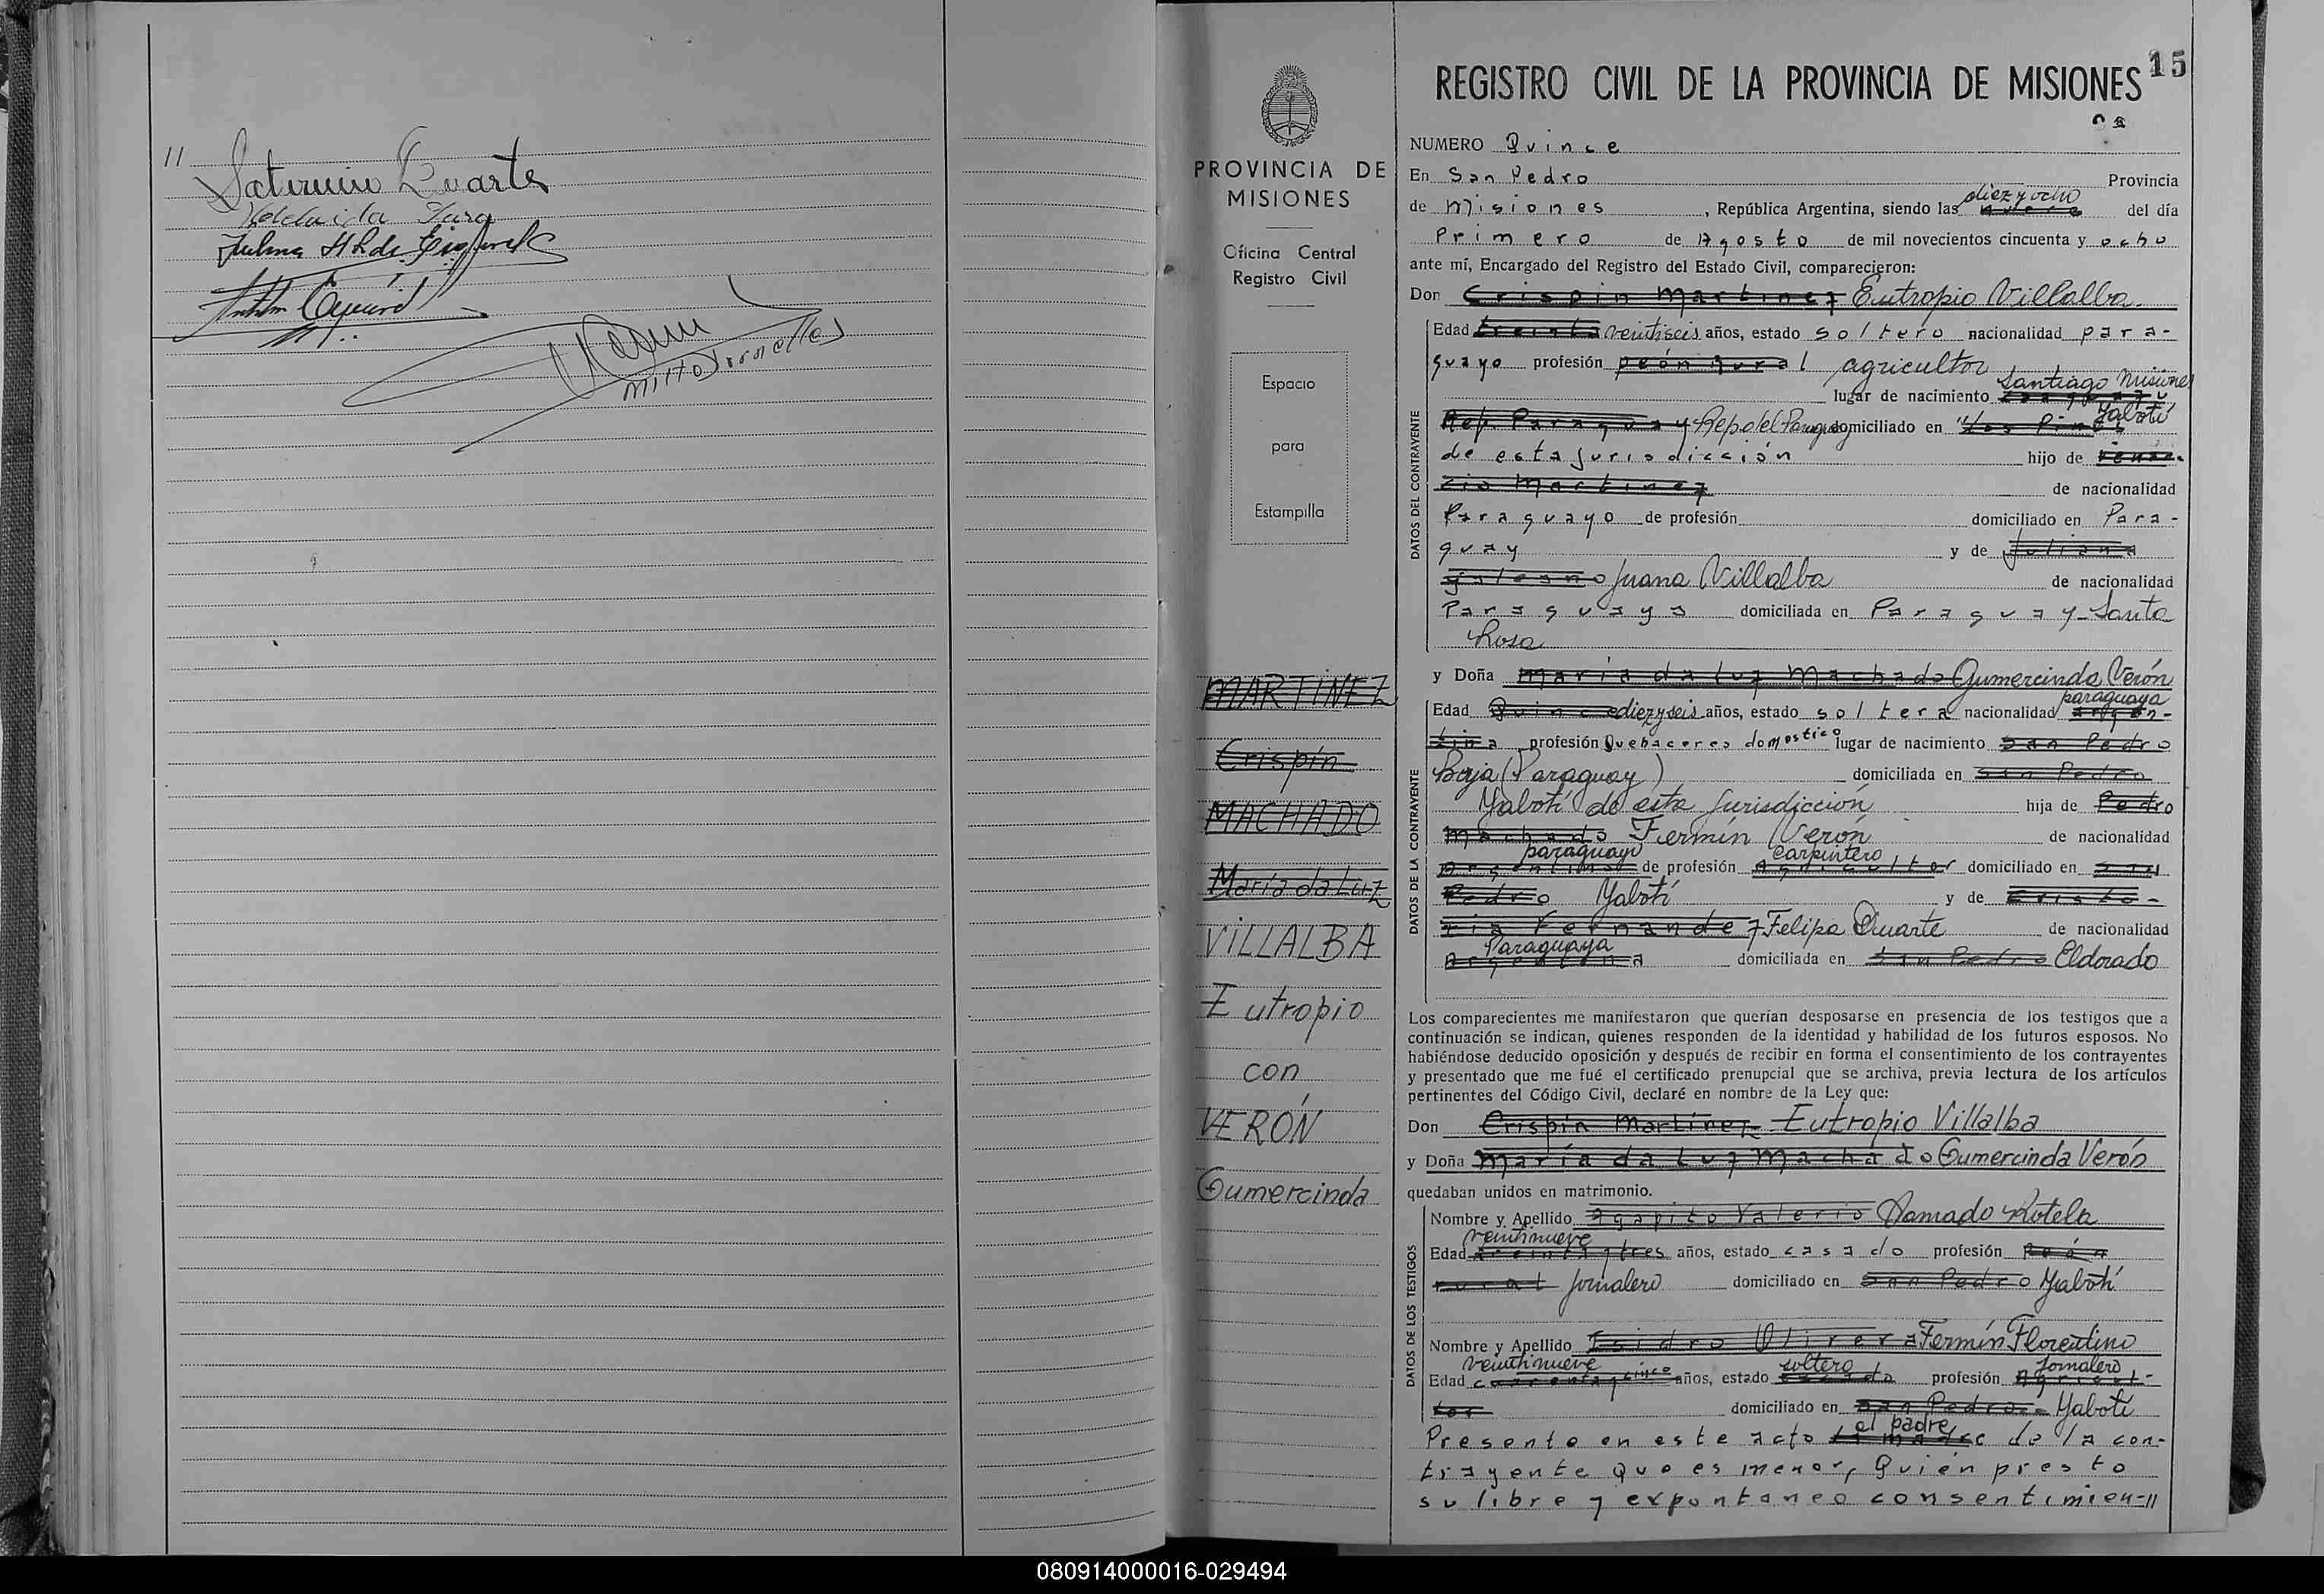 11
Saturnino Duarte
15
REGISTRO CIVIL DE LA PROVINCIA DE MISIONES
PROVINCIA DE
MISIONES
Oficina Central
Registro Civil
Espacio
para
Estampilla
MARTINEZ
Crispín
MACHADO
María da Luz
VILLALBA
Eutropio
con
VERÓN
Gumercinda
NUMERO Quince
En San Pedro Provincia
de Misiones, República Argentina, siendo las diez y ocho del día
Primero de Agosto de mil novecientos cincuenta y ocho
ante mí, Encargado del Registro del Estado Civil, comparecieron:
Don Crispin Martinez Eutropio Villalba.
Edad treinta veintiseis años, estado soltero nacionalidad para-
guayo profesión peón rural agricultor
lugar de nacimiento Santiago Misiones
Rep. Paraguay Rep del Paraguay domiciliado en "Los Pinos Yabotí
de esta Jurisdicción hijo de Venan-
cio Martinez de nacionalidad
Paraguayo de profesión domiciliado en Para-
guay y de Juliana
Juana Villalba de nacionalidad
Paraguaya domiciliada en Paraguay - Santa
Rosa
y Doña María da Luz Machado Gumercinda Verón
Edad Quince diez y seis años, estado soltera nacionalidad argen- paraguaya
tina profesión Quehaceres domestico lugar de nacimiento San Pedro
Borja (Paraguay) domiciliada en San Pedro
Yabotí de esta Jurisdicción hija de Pedro
Machado Fermín Verón de nacionalidad
Argentino paraguayo de profesión Agricultor carpintero domiciliado en San
Pedro Yabotí y de Cristo-
ria Fernandez Felipa Duarte de nacionalidad
Argentina Paraguaya domiciliada en San Pedro Eldorado
Los comparecientes me manifestaron que querían desposarse en presencia de los testigos que a
continuación se indican, quienes responden de la identidad y habilidad de los futuros esposos. No
habiéndose deducido oposición y después de recibir en forma el consentimiento de los contrayentes
y presentado que me fué el certificado prenupcial que se archiva, previa lectura de los artículos
pertinentes del Código Civil, declaré en nombre de la Ley que:
Don Crispín Martinez Eutropio Villalba
y Doña María da Luz Machado Gumercinda Verón
quedaban unidos en matrimonio.
Nombre y Apellido Agapito Valerio Damado Rotela
Edad treinta y tres veintinueve años, estado casado profesión Peón
rural Jornalero domiciliado en San Pedro Yabotí
Nombre y Apellido Isidro Olivera Fermín Florentino
Edad cuarenta y cinco veintinueve años, estado casado soltero profesión Agricul- Jornalero
tor domiciliado en San Pedro Yabotí
Presente en este acto la madre el padre de la con-
trayente que es menor, Quién presto
su libre y expontaneo consentimien-11
DATOS DEL CONTRAYENTE
DATOS DE LA CONTRAYENTE
DATOS DE LOS TESTIGOS
080914000016-029494